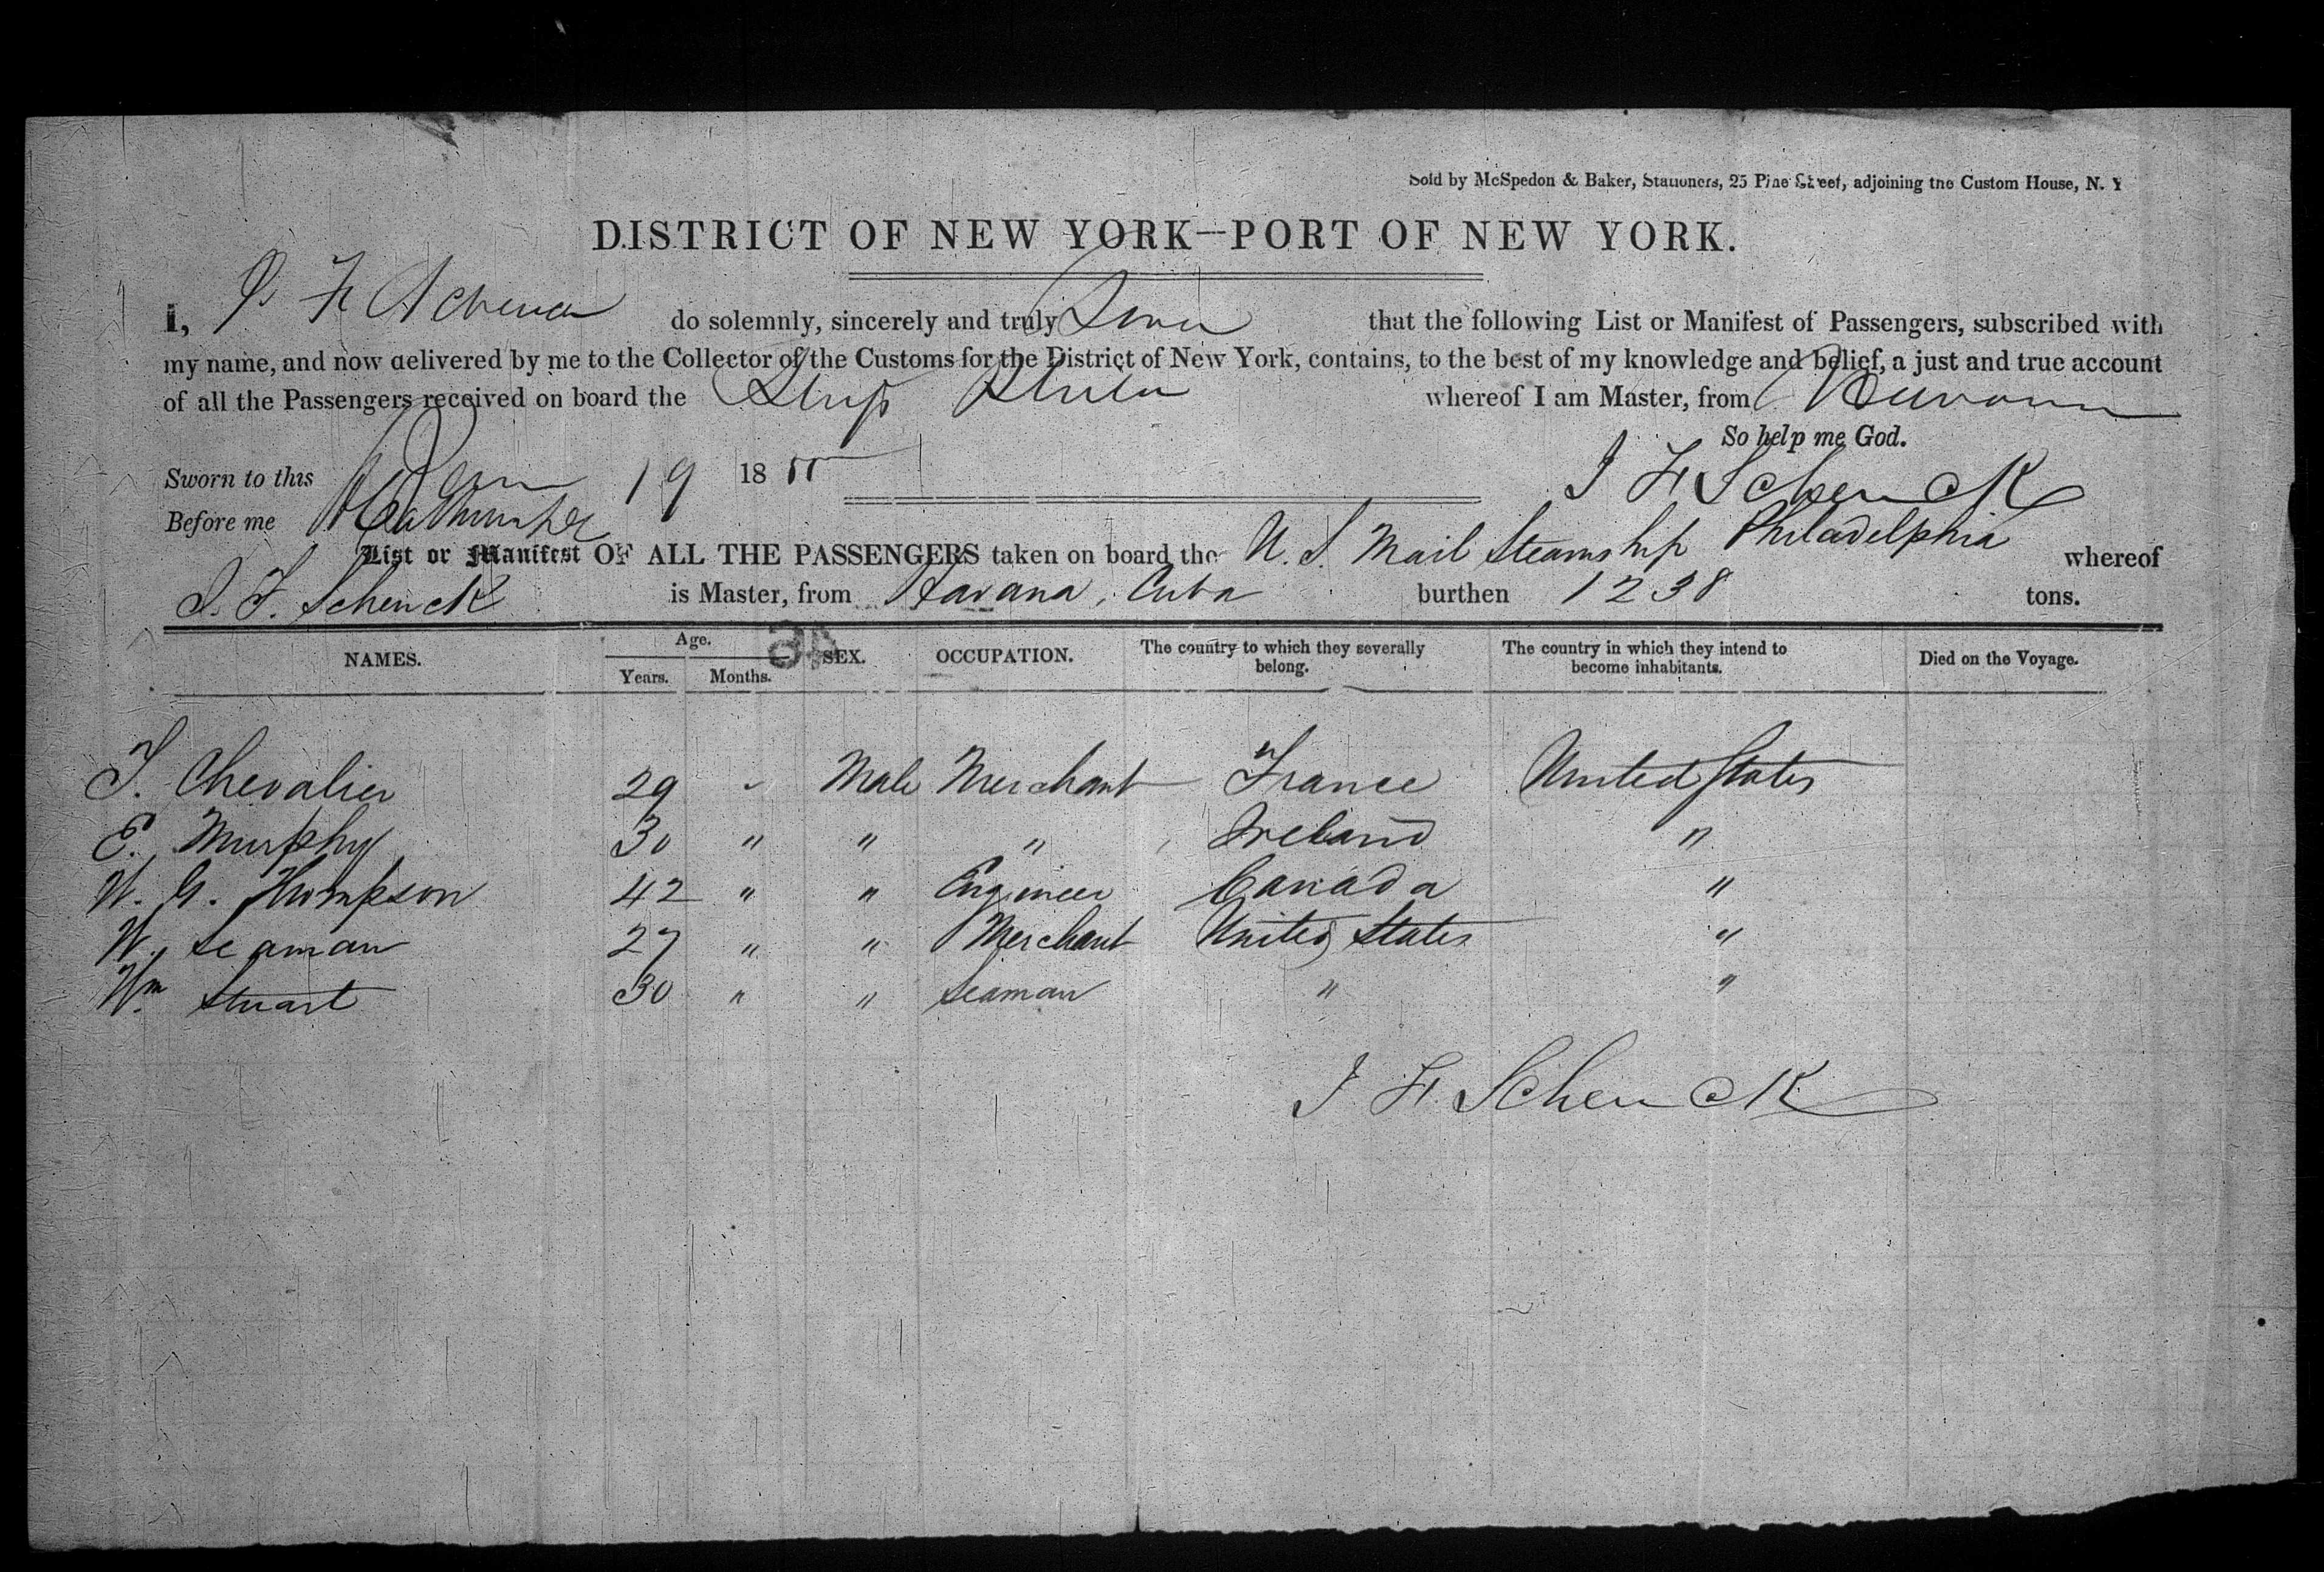 Sold by McSpedon & Baker, Stationers, 25 Pine Street, adjoining the Custom House, N. Y
DISTRICT OF NEW YORK—PORT OF NEW YORK.
I, J F Schenck do solemnly, sincerely and truly Swear that the following List or Manifest of Passengers, subscribed with
my name, and now delivered by me to the Collector of the Customs for the District of New York, contains, to the best of my knowledge and belief, a just and true account
of all the Passengers received on board the Ship Phila whereof I am Master, from Havana
So help me God.
Sworn to this 19 1855 J F Schenck
Before me
List or Manifest OF ALL THE PASSENGERS taken on board the U. S. Mail Steamship Philadelphia whereof
J. F. Schenck is Master, from Havana, Cuba burthen 1238 tons.
NAMES. Age. Years. Months. SEX. OCCUPATION. The country to which they severally belong. The country in which they intend to become inhabitants. Died on the Voyage.
T. Chevalier 29 " Male Merchant France United States
E. Murphy 30 " " " Ireland "
W. G. Thompson 42 " " Engineer Canada "
W. Seaman 27 " " Merchant United States "
Wm Stuart 30 " " Seaman " "
J F Schenck